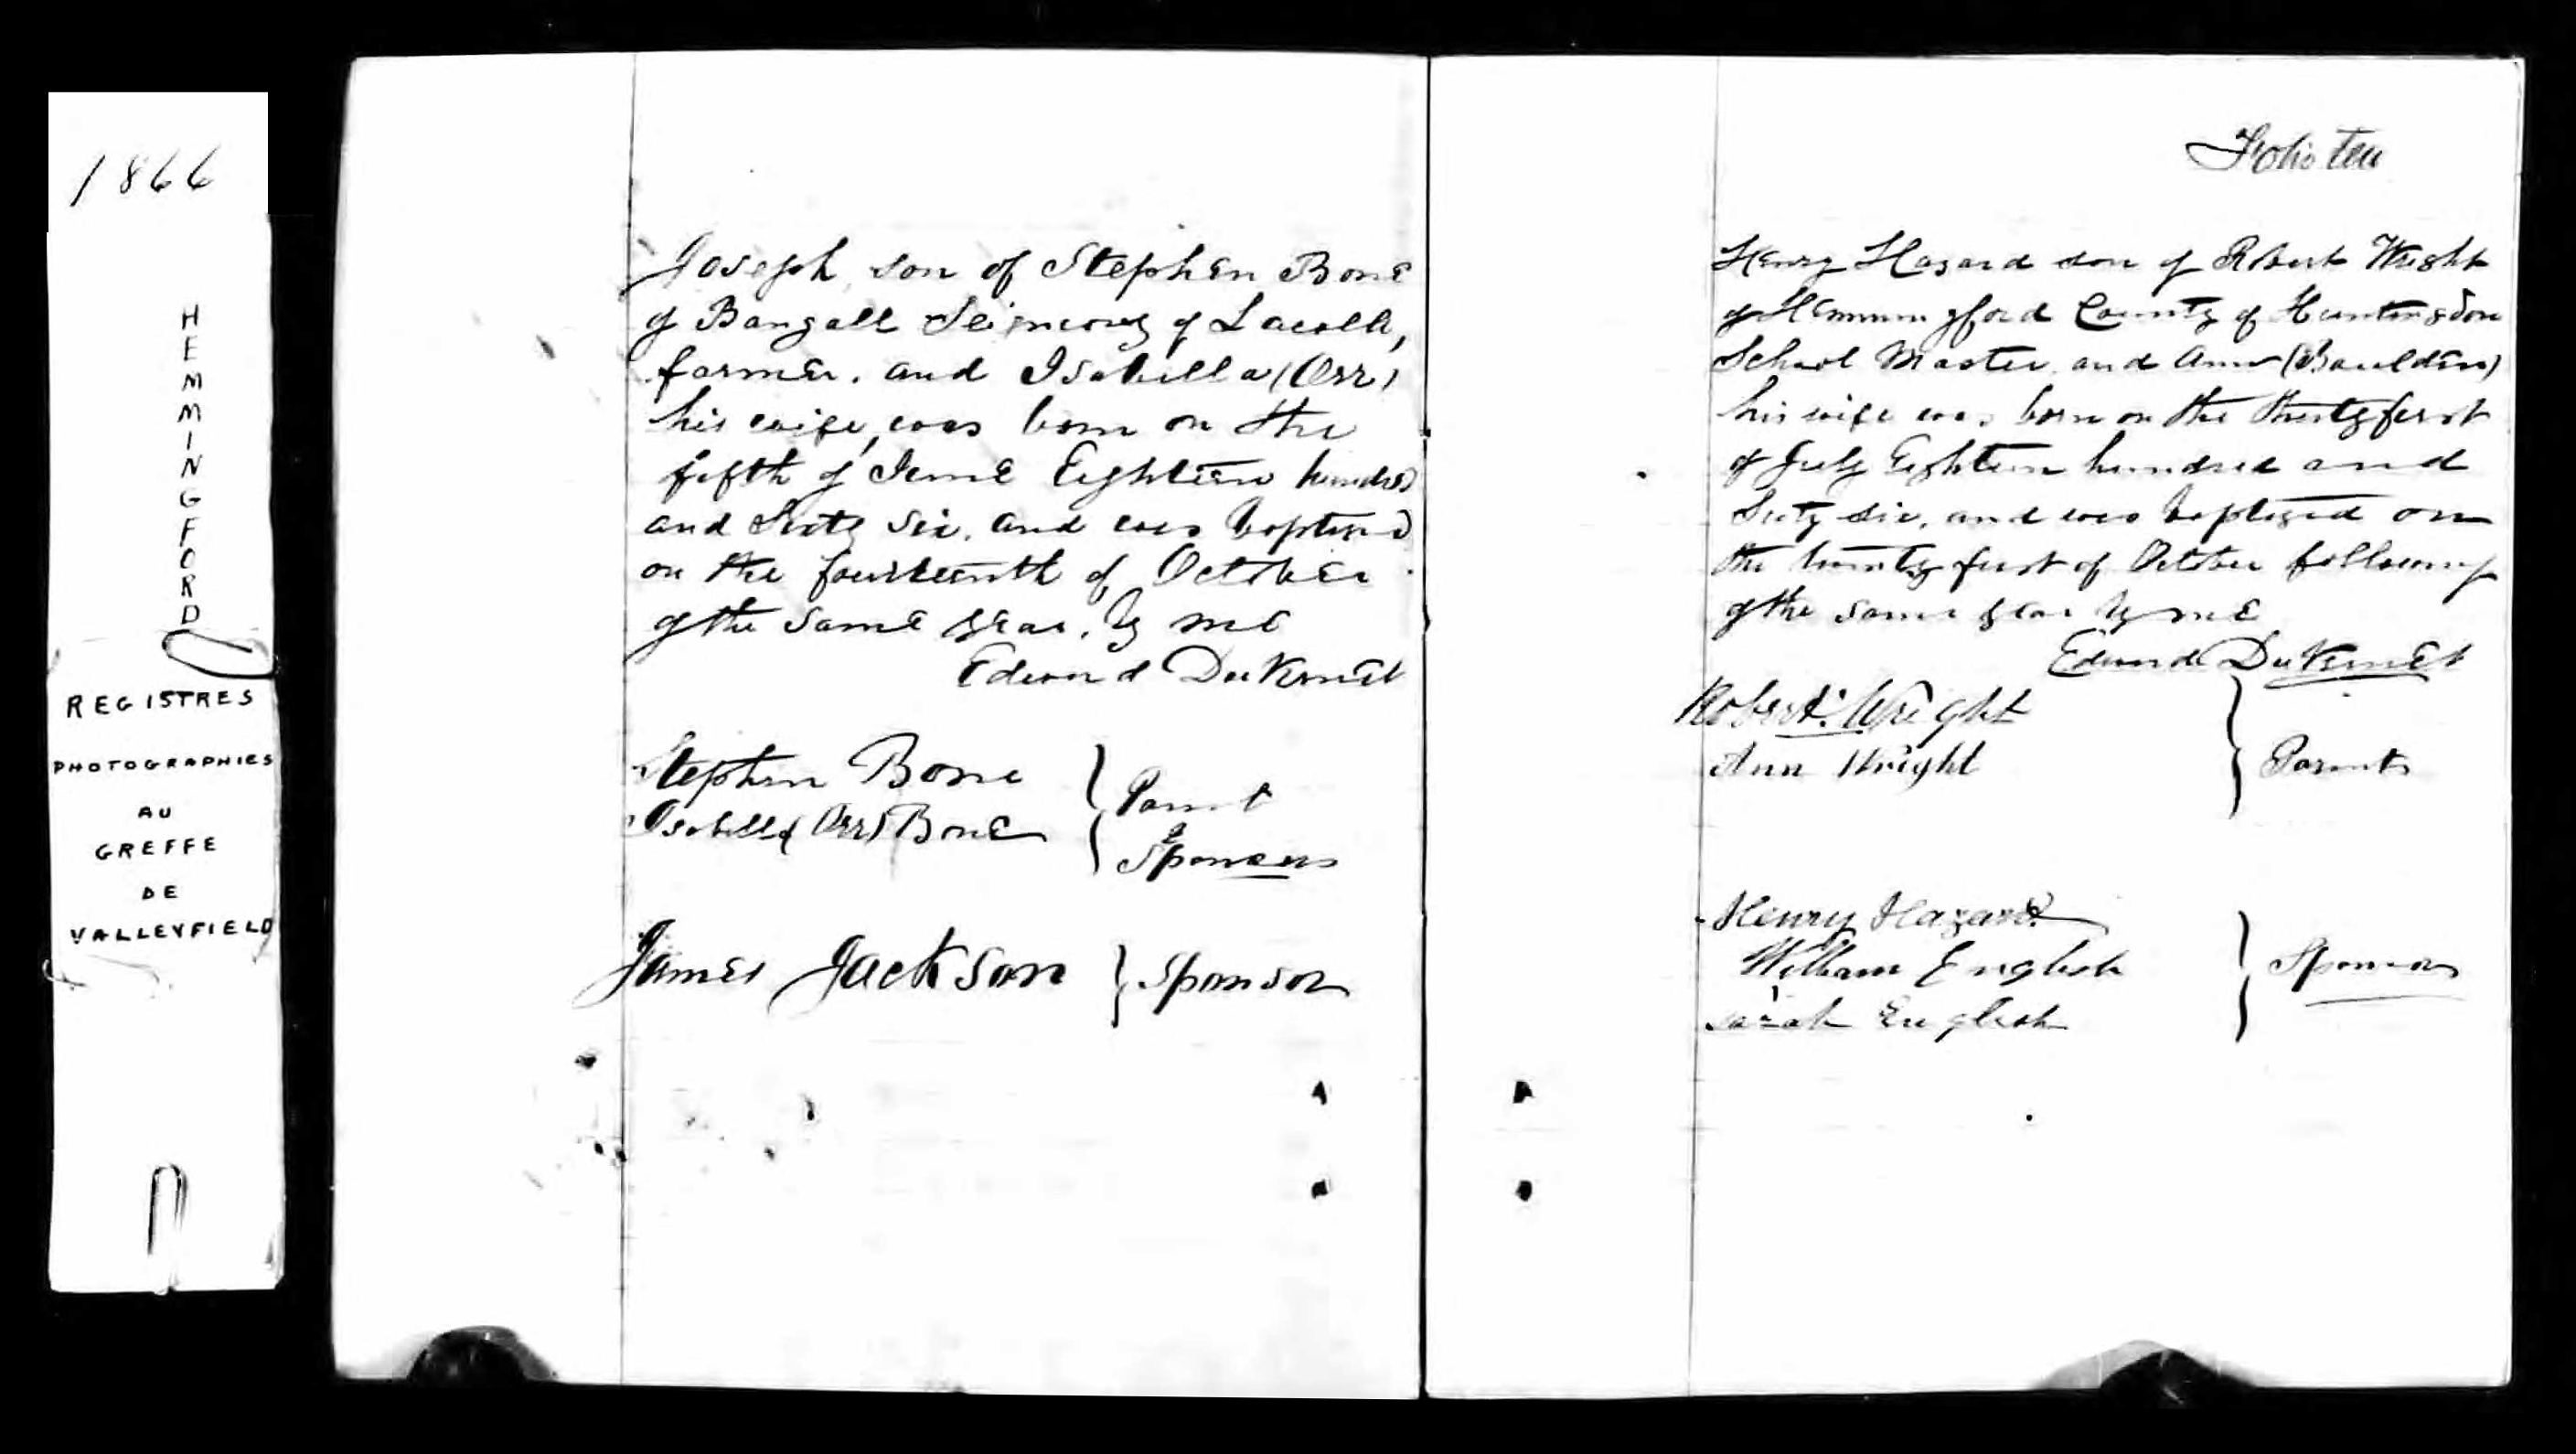 1866
HEMMINGFORD
REGISTRES
PHOTOGRAPHIES
AU
GREFFE
DE
VALLEYFIELD
Joseph, son of Stephen Bone
of Bangall Seigniory of Lacolle,
farmer, and Isabella (Orr)
his wife, was born on the
fifth of June Eighteen hundred
and Sixty Six, and was baptized
on the fourteenth of October
of the same year, by me
Edward DuVernet
Stephen Bone
Isabella (Orr) Bone
Parent
&
Sponsors
James Jackson } Sponsor
Folio ten
Henry Hazard son of Robert Wright
of Hemmingford County of Huntingdon
School Master, and Ann (Bauldin)
his wife was born on the thirty first
of July Eighteen hundred and
Sixty six, and was baptized on
the twenty first of October following
of the same year by me
Edward DuVernet
Robert Wright
Ann Wright
Parents
Henry Hazard
William English
Sarah English
Sponsors